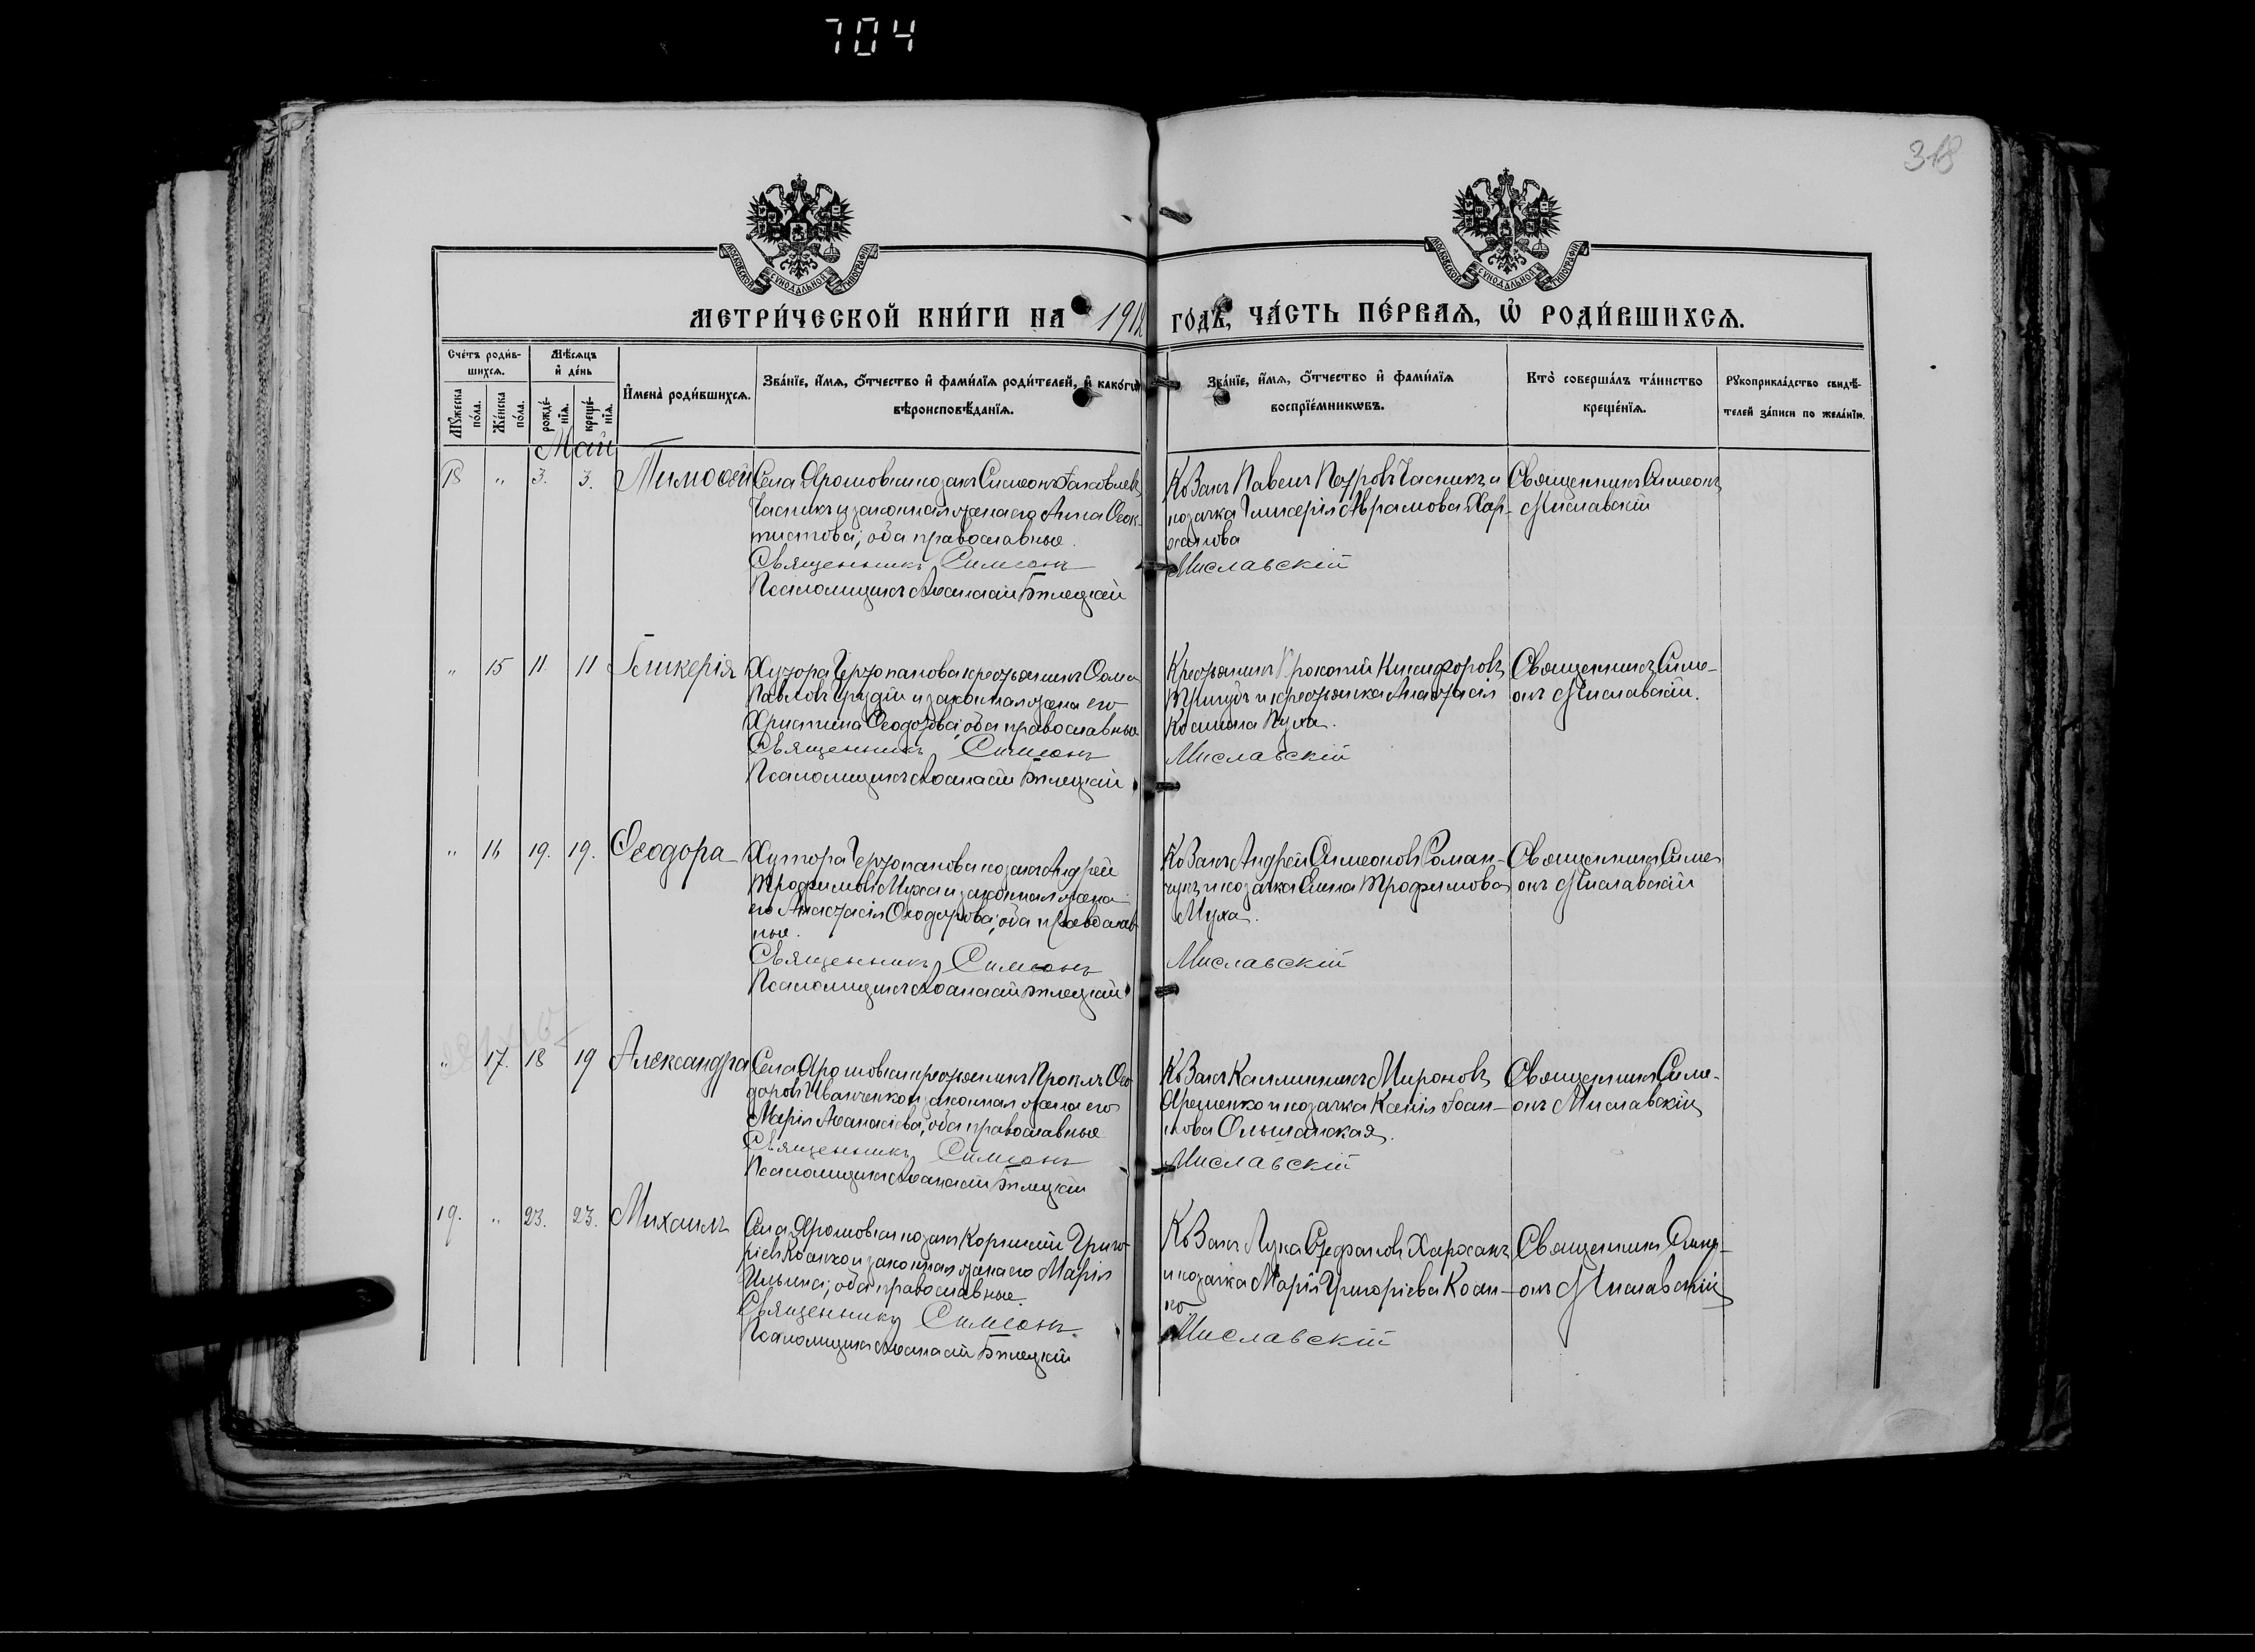 704
318
МОСКОВСКОЙ СѴНОДАЛЬНОЙ ТИПОГРАФІИ
МОСКОВСКОЙ СѴНОДАЛЬНОЙ ТИПОГРАФІИ
МЕТРИ́ЧЕСКОЙ КНИ́ГИ НА 1912 ГОДЪ, ЧА́СТЬ ПЕ́РВАѦ, Ѡ҆ РОДИ́ВШИХСѦ.
Сче́тъ роди́в-
шихсѧ.
Мѣ́сѧцъ
и҆ де́нь
Мꙋ́жеска
по́ла.
Же́нска
по́ла.
рожде́-
нїѧ.
креще́-
нїѧ.
И҆мена̀ роди́вшихсѧ.
Зва́нїе, и҆́мѧ, о҆́тчество и҆ фами́лїѧ роди́телей, и҆ како́гѡ
вѣроисповѣ́данїѧ.
Зва́нїе, и҆́мѧ, о҆́тчество и҆ фами́лїѧ
воспрїе́мникѡвъ.
Кто̀ соверша́лъ та́инство
креще́нїѧ.
Рꙋкоприкла́дство свидѣ́-
телей за́писи по жела́нїю.
Май
18 " 3. 3. Тимоѳей
Села Ярошовки козакъ Симеонъ Іаковлевъ
Часникъ и законная жена его Анна Ѳеок-
тистова; оба православные.
Священникъ Симеонъ
Псаломщикъ Аѳанасій Бѣлецкій
Козакъ Павелъ Петровъ Часникъ и
козачка Гликерія Аврамова Хар-
ханова
Миславскій
Священникъ Симеонъ
Миславскій
" 15 11. 11 Гликерія
Хутора Чертопалова крестьянинъ Ѳома
Павловъ и законная жена его
Христина Ѳеодорова; оба православные
Священникъ Симеонъ
Псаломщикъ Аѳанасій Бѣлецкій
Крестьянинъ Прокопій Никифоровъ
и крестьянка Анастасія
Космина
Миславскій
Священникъ Симе-
онъ Миславскій.
" 16 19. 19. Ѳеодора
Хутора Чертопалова козакъ Андрей
Трофимовъ Муха и законная жена
его Анастасія Ѳеодорова; оба православ-
ные.
Священникъ Симеонъ
Псаломщикъ Аѳанасій Бѣлецкій
Козакъ Андрей Симеоновъ Роман-
чукъ и козачка Елена Трофимова
Муха.
Миславскій
Священникъ Симе-
онъ Миславскій
" 17. 18 19 Александра
Села Ярошовки крестьянинъ Проклъ Ѳео-
доровъ Иванченко и законная жена его
Марія Аѳанасіева; оба православные
Священникъ Симеонъ
Псаломщикъ Аѳанасій Бѣлецкій
Козакъ Каллиникъ Мироновъ
Яременко и козачка Ксенія Іоан-
нова Ольшанская.
Миславскій
Священникъ Симе-
онъ Миславскій
19. " 23. 23. Михаилъ
Села Ярошовки козакъ Корнилій Григо-
ріевъ и законная жена его Марія
Ильина; оба православные.
Священникъ Симеонъ
Псаломщикъ Аѳанасій Бѣлецкій
Козакъ Лука Стефановъ Харханъ
и козачка Марія Григоріева
Миславскій
Священникъ Симе-
онъ Миславскій